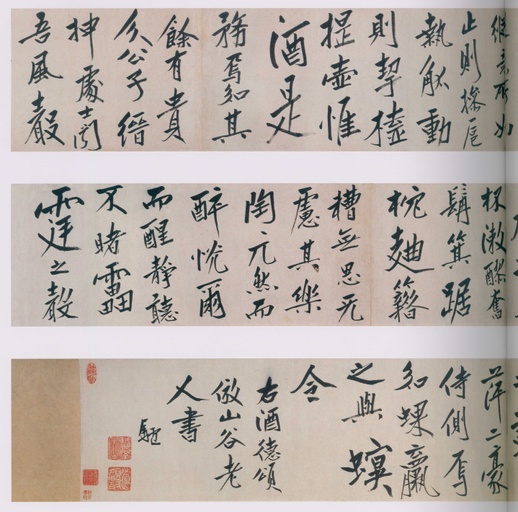 縱意所如
止則操巵
執觚動
則挈榼
提壺惟
酒是
務焉知其
餘有貴
介公子縉
紳處士聞
吾風聲
杯漱醪奮
髯箕踞
枕麹籍
糟無思无
慮其樂
陶々兀然而
醉恍爾
而醒靜聽
不睹靁
霆之聲
萍二豪
侍側焉
如蜾蠃
之與螟
令
右酒德頌
倣山谷老
人書